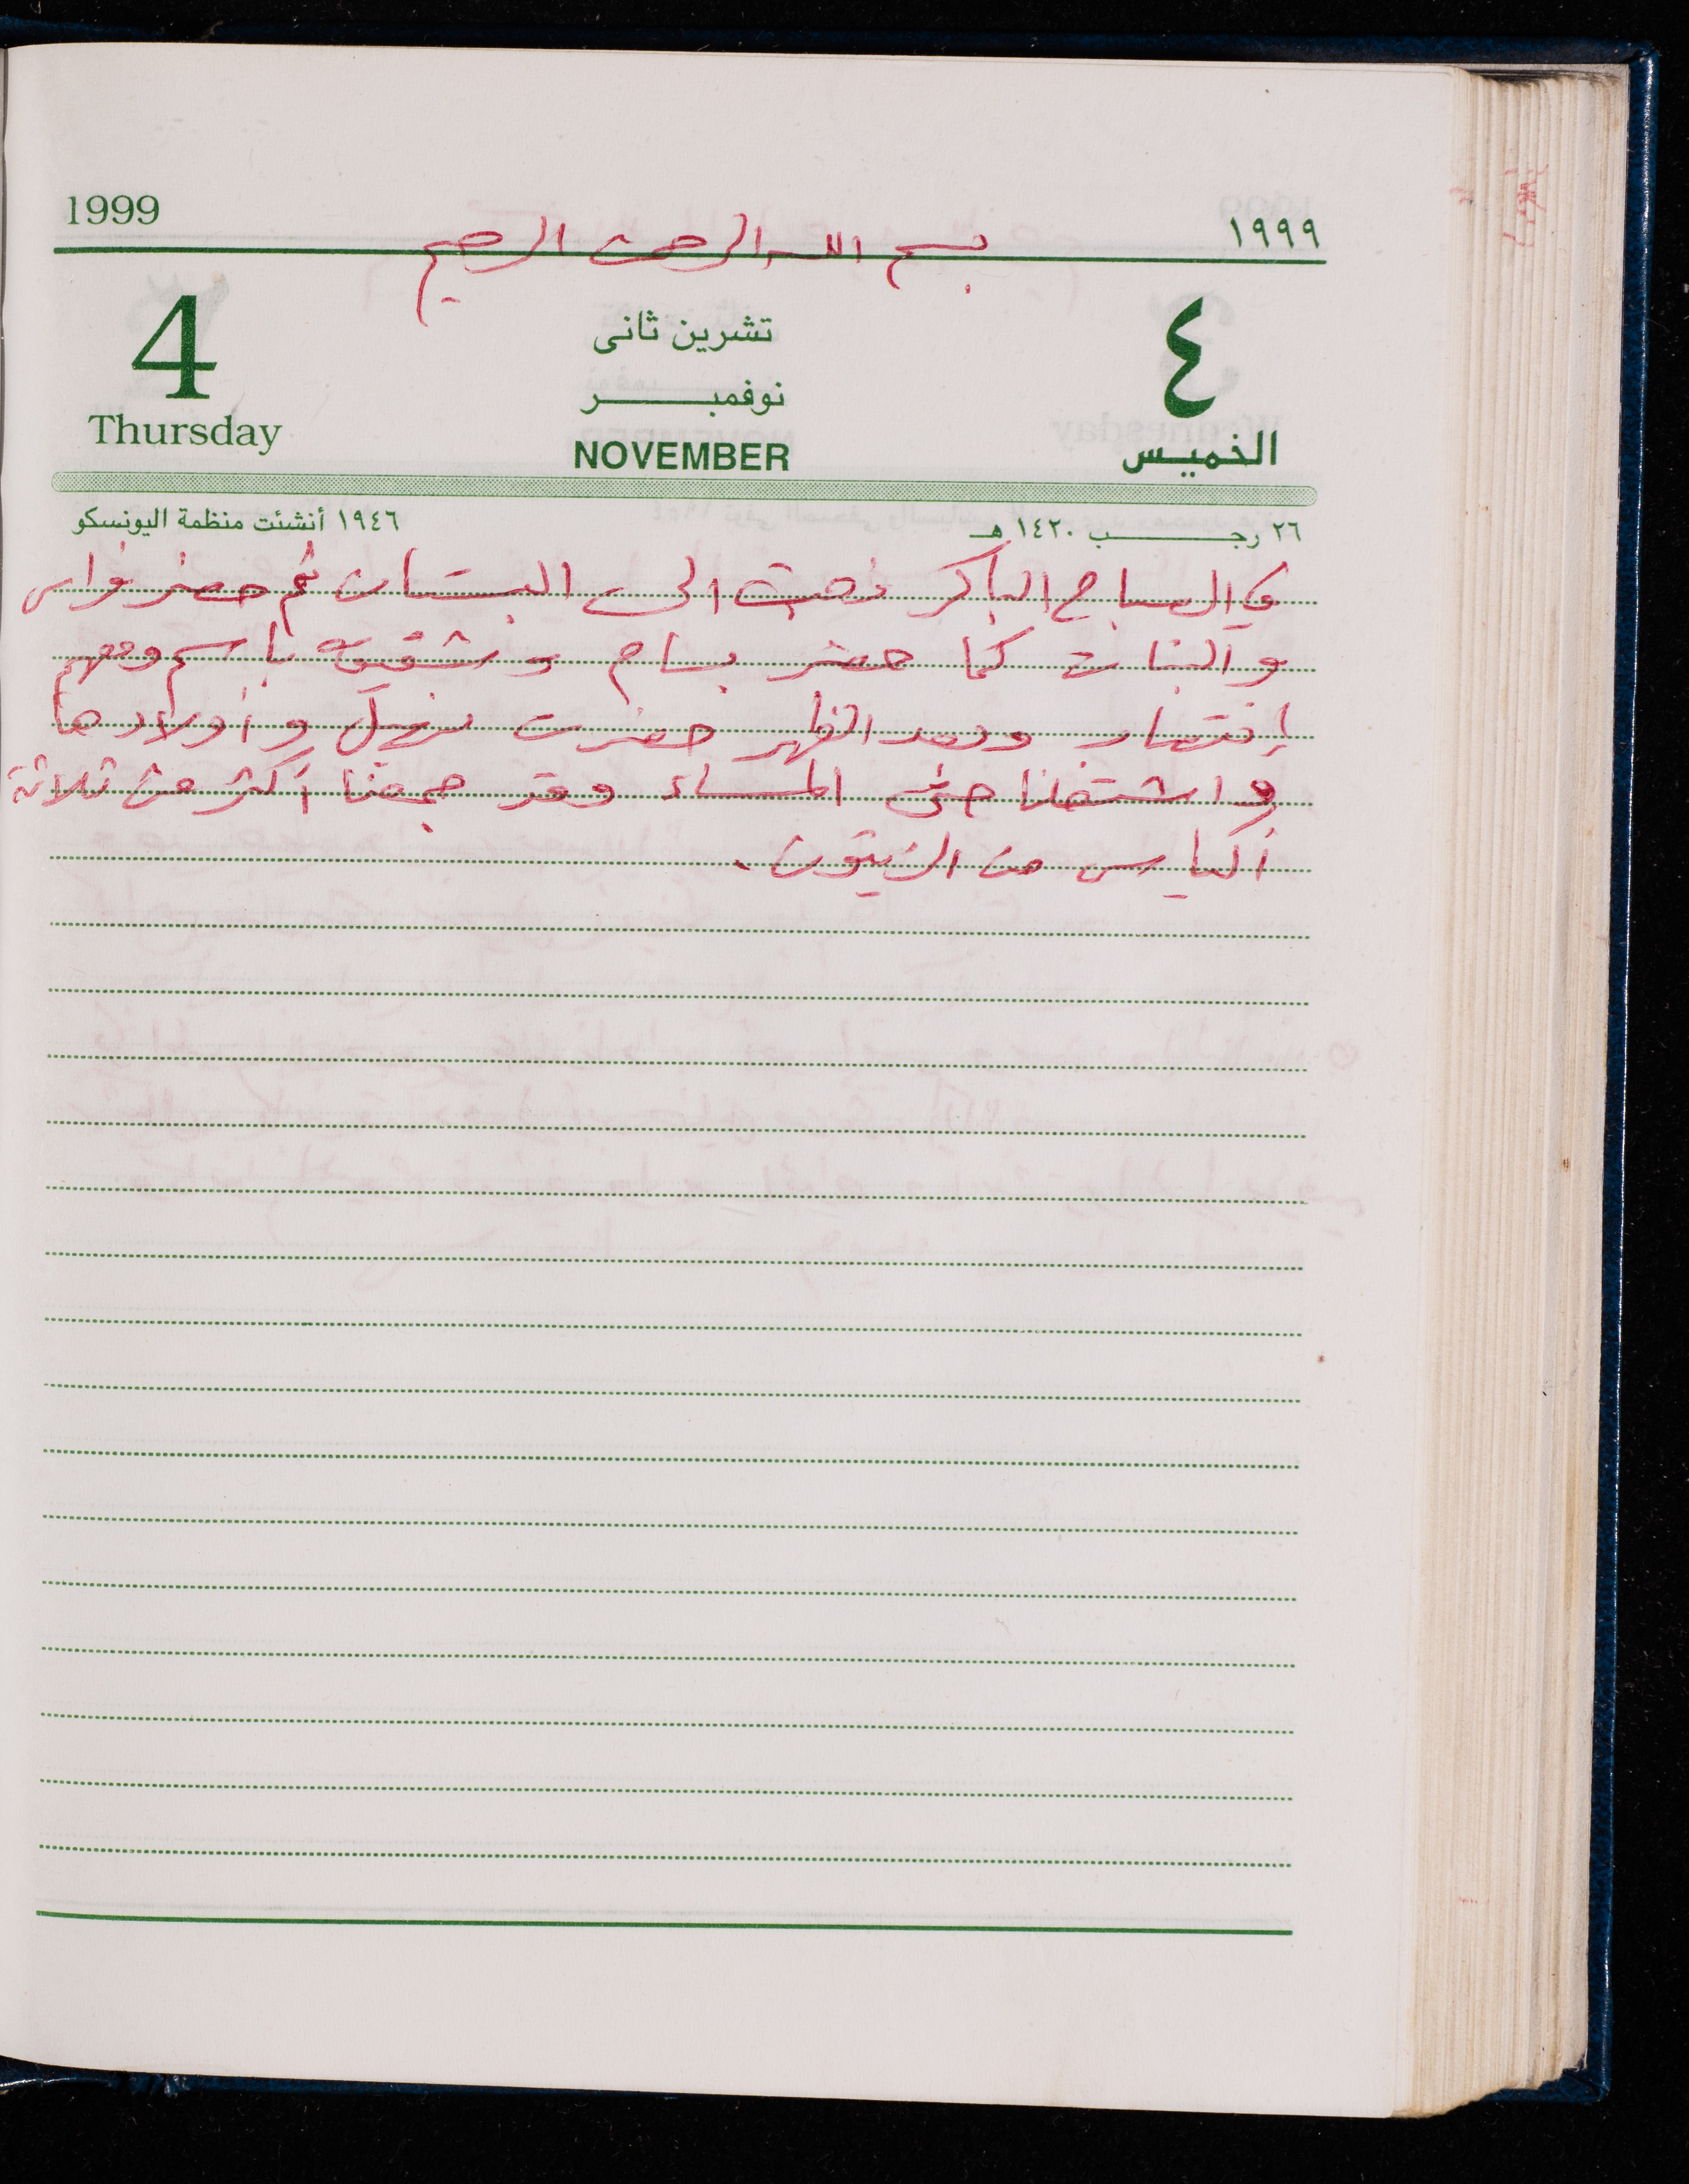 1999 ١٩٩٩
بسم الله الرحمن الرحيم
4 تشرين ثانى ٤
نوفمبر
Thursday NOVEMBER الخميس
٢٦ رجب ١٤٢٠ هـ ١٩٤٦ أنشئت منظمة اليونسكو
في الصباح الباكر ذهبت الى البستان ثم حضر فراس
والبنات كما حضر بسام وشقيقه باسم ومعهم
وبعد الظهر حضرت وأولادها
واشتغلنا حتى المساء وقد جمعنا أكثر من ثلاثة
أكياس من الزيتون.